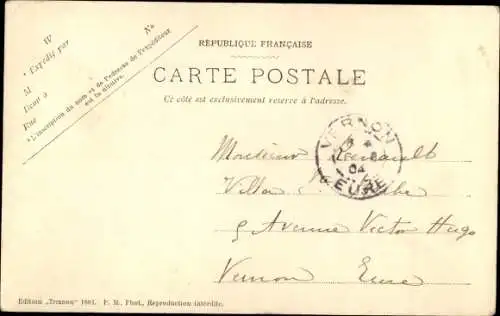 Nº
M
* Expédié par
M
Rue
* L'inscription du nom et de l'adresse de l'expéditeur
est facultative.
RÉPUBLIQUE FRANÇAISE
CARTE POSTALE
Ce côté est exclusivement réservé à l'adresse.
VERNON
04
EURE
Monsieur
Villa
9 Avenue Victor Hugo
Vernon Eure
1981. P. M. Phot., Reproduction interdite.